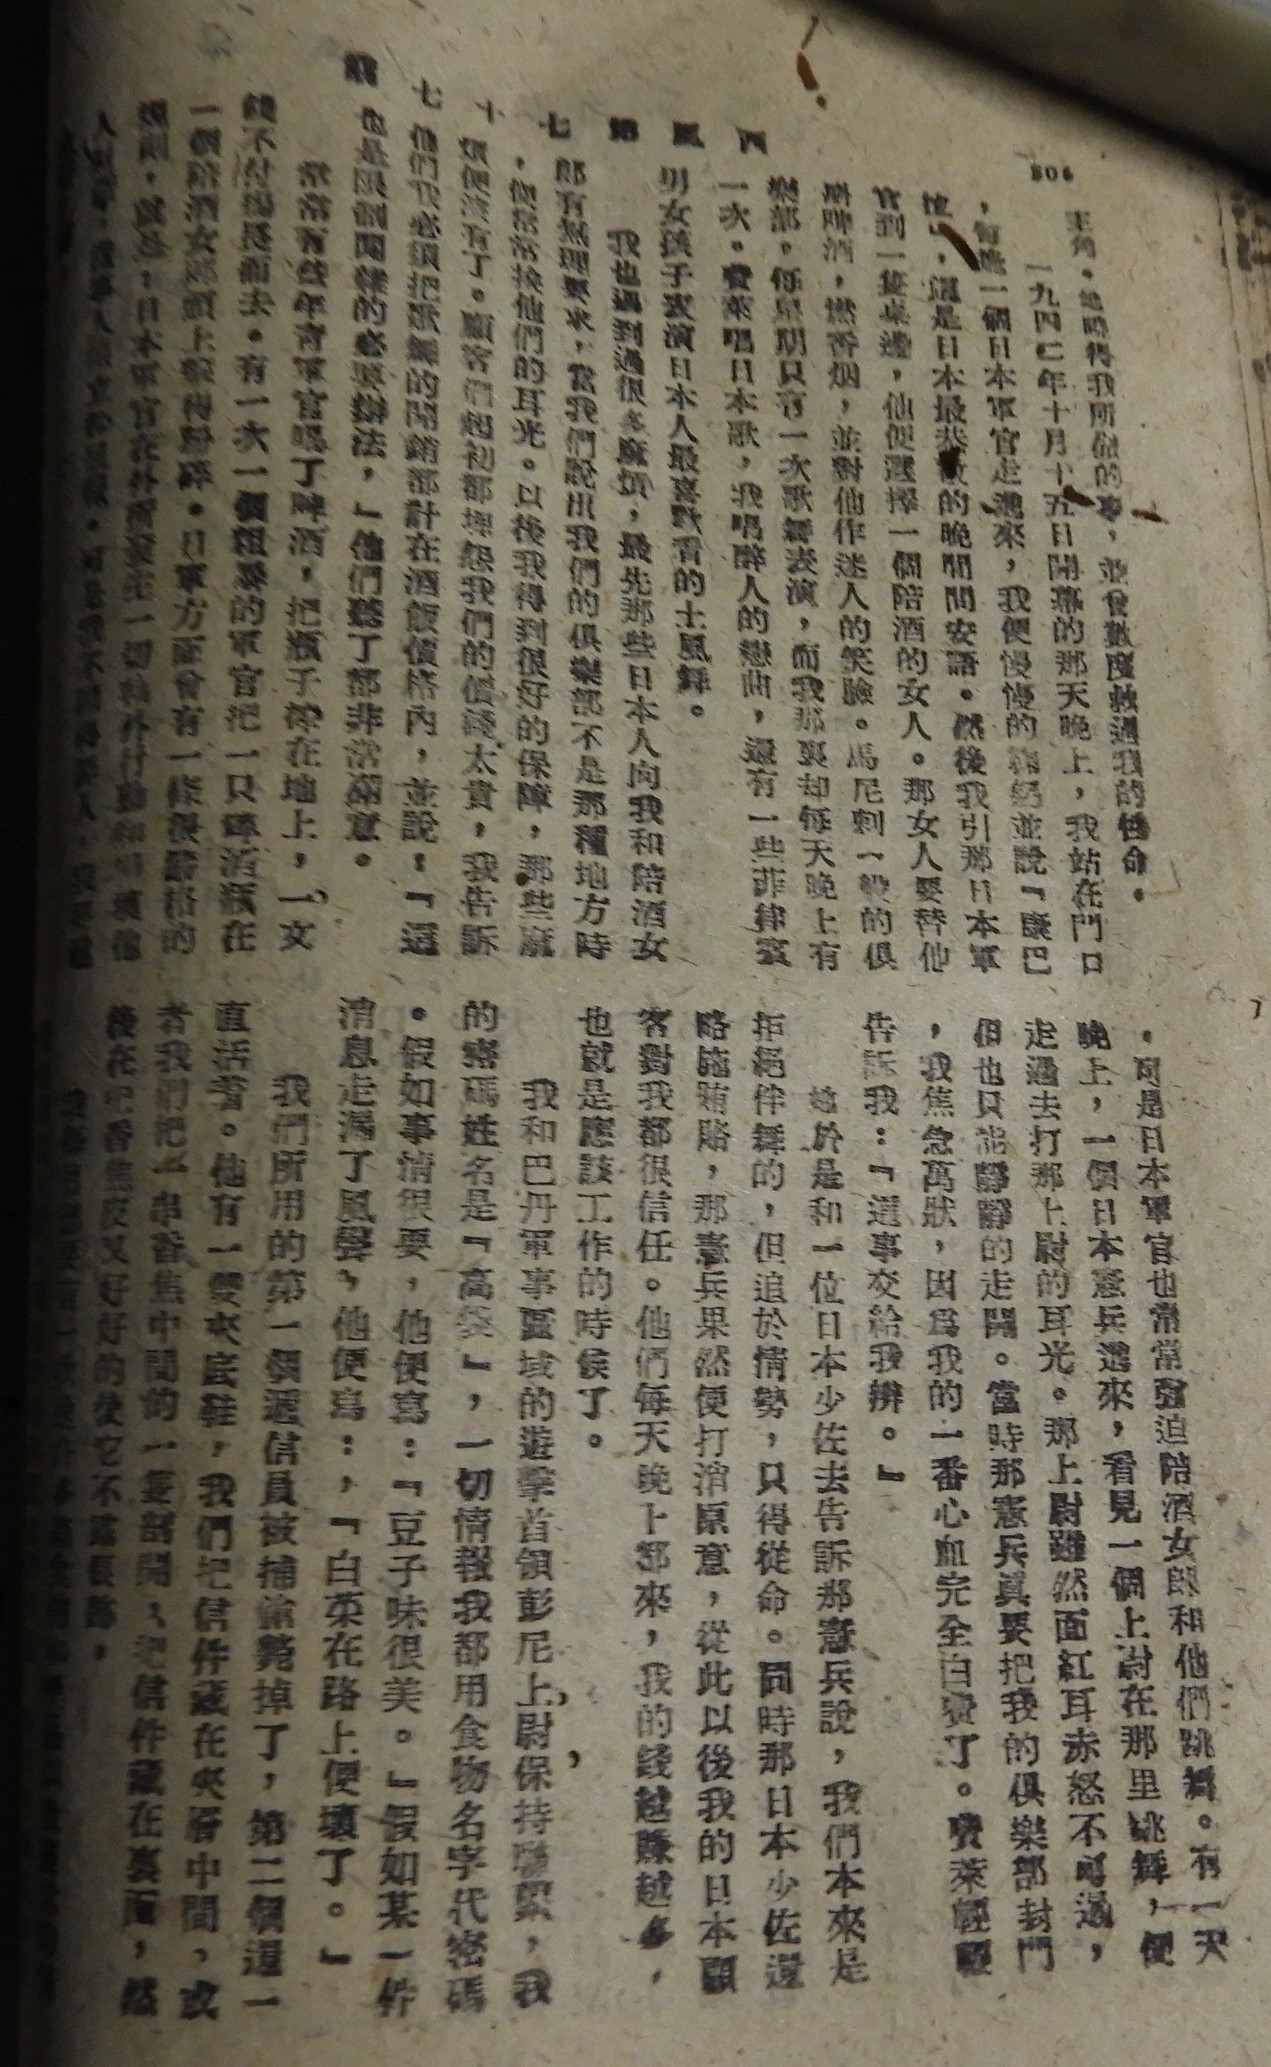 806
西風第七十七期
主角。她曉得我所做的事，並曾數度救過我的性命。
一九四二年十月十五日開幕的那天晚上，我站在門口
，每逢一個日本軍官走進來，我便慢慢的鞠躬並說『康巴
哇』，這是日本最恭敬的晚間問安語。然後我引那日本軍
官到一隻桌邊，他便選擇一個陪酒的女人。那女人要替他
斟啤酒，燃香烟，並對他作迷人的笑臉。馬尼剌一般的俱
樂部，每星期只有一次歌舞表演，而我那裏却每天晚上有
一次。費萊唱日本歌，我唱醉人的戀曲，還有一些菲律賓
男女孩子表演日本人最喜歡看的土風舞。
我也遇到過很多麻煩，最先那些日本人向我和陪酒女
郎有無理要求，當我們說出我們的俱樂部不是那種地方時
，便常常挨他們的耳光。以後我得到很好的保障，那些麻
煩便沒有了。顧客們起初都埋怨我們的價錢太貴，我告訴
他們我必須把歌舞的開銷都計在酒飯價格內，並說：『這
也是限制閒雜的必要辦法，』他們聽了都非常滿意。
常常有些年青軍官喝了啤酒，把瓶子摔在地上，一文
錢不付揚長而去。有一次一個粗暴的軍官把一只啤酒瓶在
一個陪酒女郎頭上敲得粉碎。日軍方面曾有一條很嚴格的
規則，就是，日本軍官在外面
。可是日本軍官也常常強迫陪酒女郎和他們跳舞。有一天
晚上，一個日本憲兵進來，看見一個上尉在那里跳舞，便
走過去打那上尉的耳光。那上尉雖然面紅耳赤怒不可遏，
但也只能靜靜的走開。當時那憲兵眞要把我的俱樂部封門
，我焦急萬狀，因爲我的一番心血完全白費了。費萊輕輕
告訴我：『這事交給我辦。』
她於是和一位日本少佐去告訴那憲兵說，我們本來是
拒絕伴舞的，但迫於情勢，只得從命。同時那日本少佐還
略施賄賂，那憲兵果然便打消原意，從此以後我的日本顧
客對我都很信任。他們每天晚上都來，我的錢越賺越多，
也就是應該工作的時候了。
我和巴丹軍事區域的遊擊首領彭尼上尉保持聯絜，我
的密碼姓名是『高袋』，一切情報我都用食物名字代密碼
。假如事情很要，他便寫：『豆子味很美。』假如某一件
消息走漏了風聲，他便寫：，『白菜在路上便壞了。』
我們所用的第一個遞信員被捕槍斃掉了，第二個還一
直活著。他有一雙夾底鞋，我們把信件藏在夾層中間，或
者我們把一串香焦中間的一隻剖開，把信件藏在裏面，然
後在把香焦皮又好好的使它不露痕跡，